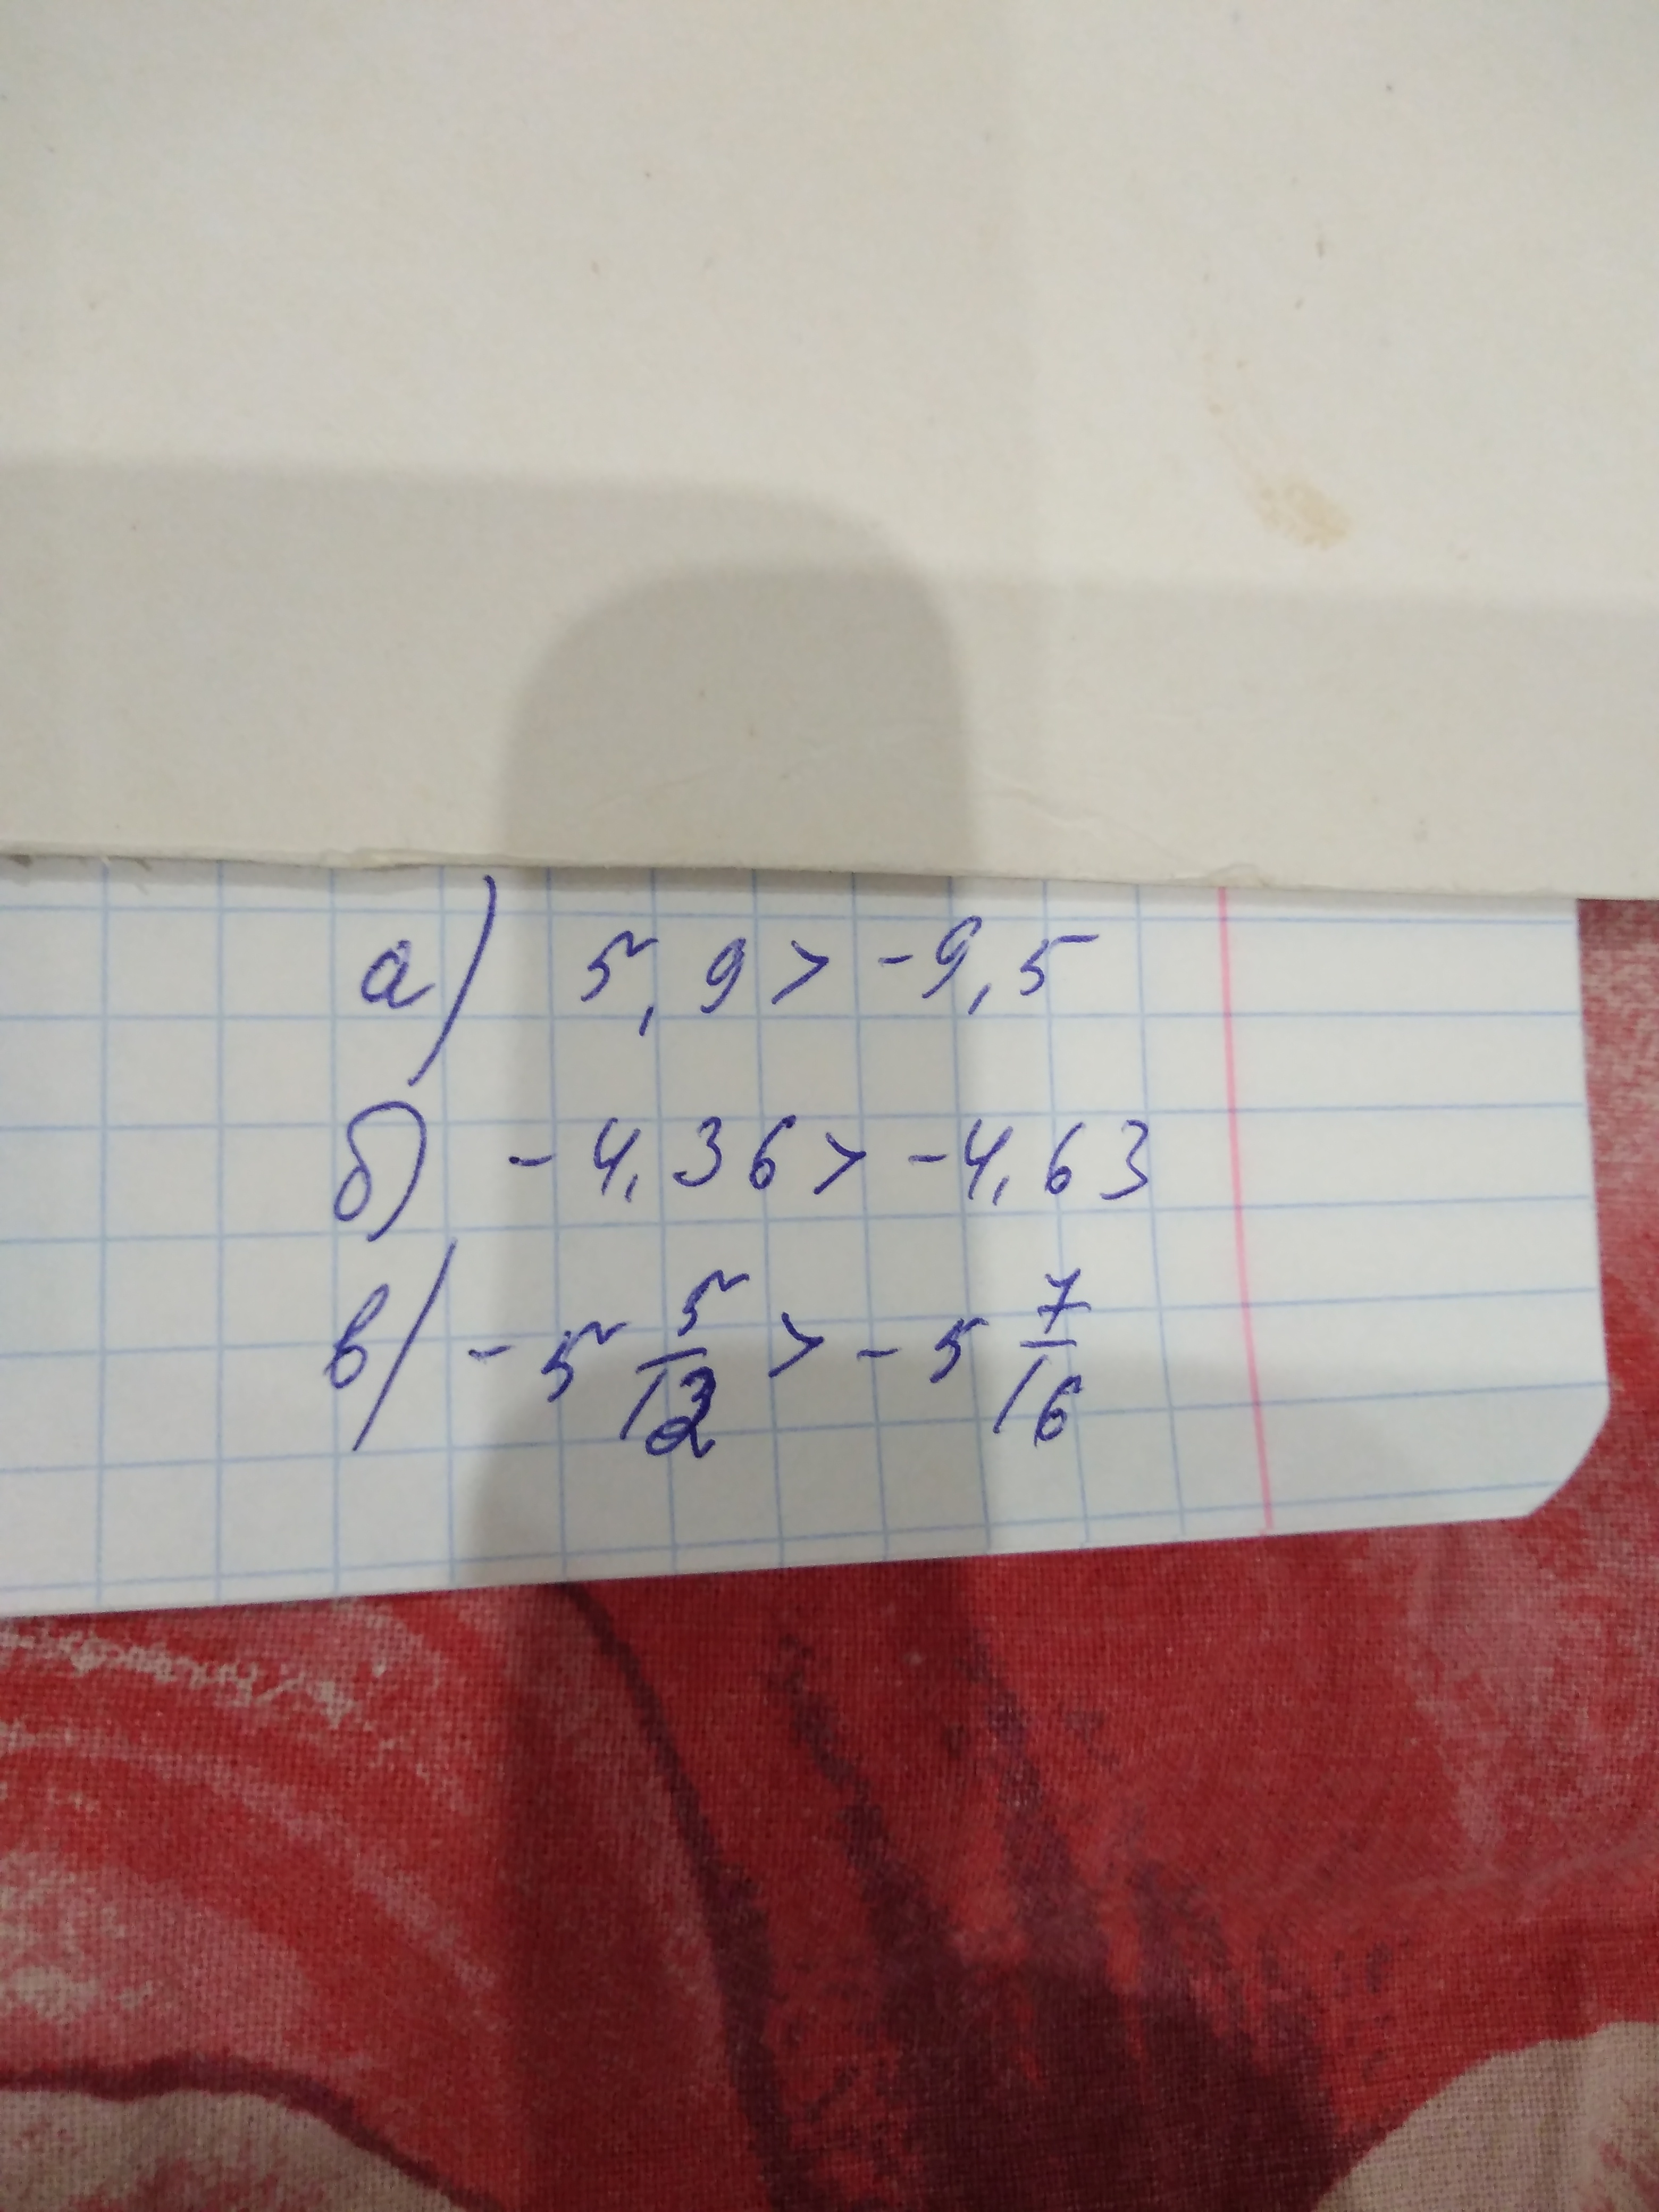 а) 5,9 > -9,5
б) -4,36 > -4,63
в) -5 5/12 > -5 7/16